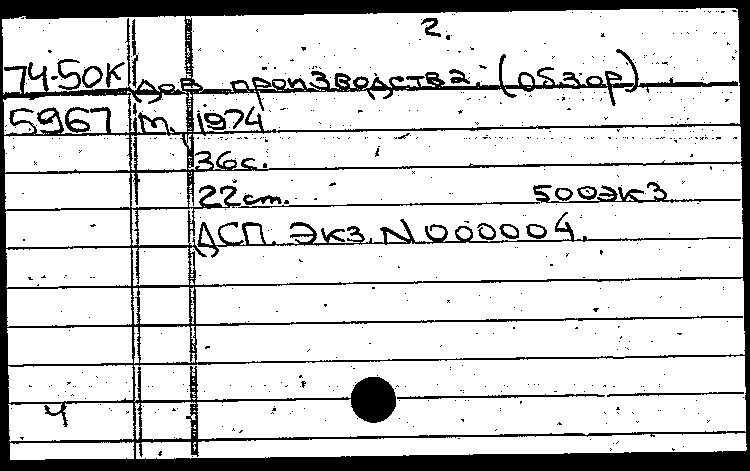 2.
74-50К дов производства. (обзор).
5967 М, 1974
36с.
22см. 500экз
ДСП. Экз. N 000004.
Ч